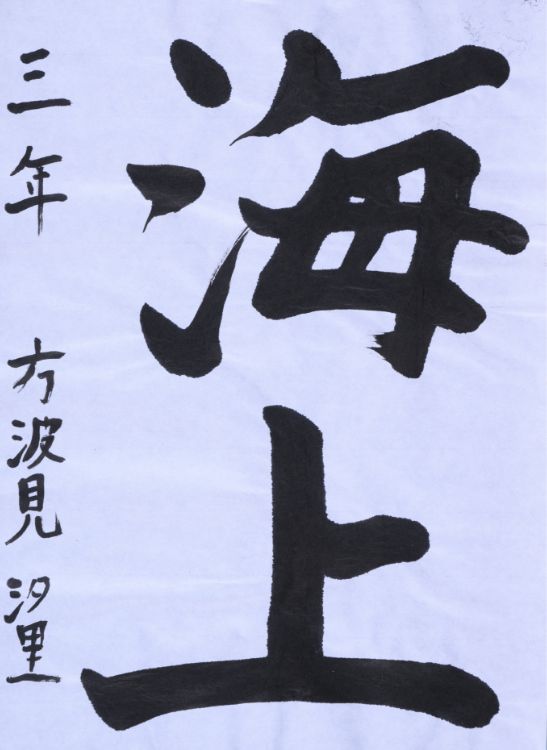 海上
三年 方波見 汐里